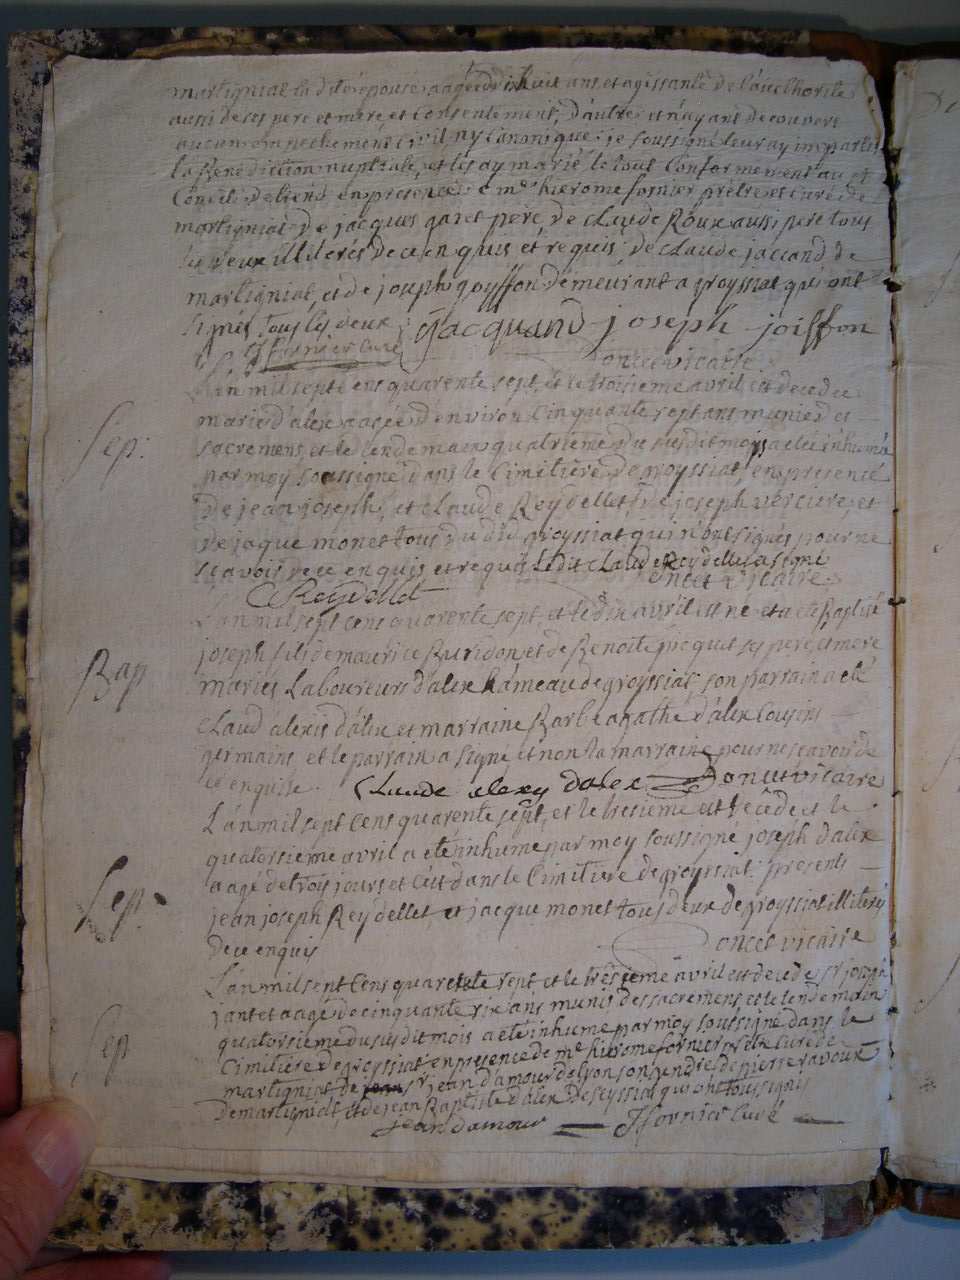 martigniat la dite epouse aagée de dixhuit ans et agissante de l'authorite
aussi de ses pere et mere et Consentement, d'autre et n'ayant decouvert
aucun empechement Civil ny Canonique je soussigné leur ay imparti
la Benediction nuptiale, et les ay marié le tout Conformement au st
Concile de trente en presence de mre hierome fornier prêtre et curé de
martigniat de jacques garet pere, de claude Roux aussi pere tous
les deux illiterés de ce enquis et requis, de claude jaccand de
martigniat, et de joseph goyffon demeurant a groyssiat qui ont
signés tous les deux jacquand joseph joiffon
fornier curé
Doncet vicaire
L'an mil sept cens quarente sept, et le troisieme avril est decedee
Sep:
marie d'alex aagée d'environ Cinquante sept ans munie des
sacremens, et le lendemain quatrieme du susdit mois a eté inhumée
par moy soussigné dans le Cimitiere de groyssiat, en presence
de jean joseph, et claude Reydellet, de joseph vercure, et
de jaque monet tous du dit groyssiat qui n'ont signés pour ne
scavoir de ce enquis et requis ledit claude Reydellet a signé
C Reydellet
Doncet vicaire
L'an mil sept cens quarente sept, et le dix avril est né et a eté Baptisé
joseph fils de maurice Buridon et de Benoite jacquet ses pere, et mere
Bap
mariés Laboureurs d'alex hameau de groyssiat son parrain a eté
claud alexis d'alex et marraine Barbe agathe d'alex Cousins
germains et le parrain a signé et non la marraine pour ne scavoir de
ce enquise. Claude alexy dalex Doncet vicaire
L'an mil sept Cens quarente sept, et le tresieme est decede et le
quatorsieme avril a eté inhumé par moy soussigné joseph d'alex
Sep:
aagé de trois jours et c'est dans le Cimitiere de groyssiat: presents
jean joseph Reydellet et jacque monet tous deux de groyssiat illiterés
de ce enquis Doncet vicaire
L'an mil sept Cens quarente sept et le tresieme avril est decede sr joseph
jantet aagé de cinquante six ans munis des sacremens et le lendemain
Sep
quatorsieme du susdit mois a eté inhumé par moy soussigné dans le
Cimitiere de groyssiat en presence de mre hierome fornier prêtre curé de
martigniat, de sr jean d'amour de lyon son gendre, de pierre ravoux
de martigniat, et de jean Baptiste d'alex de seyssiat qui ont tous signés
jean damour fornier curé